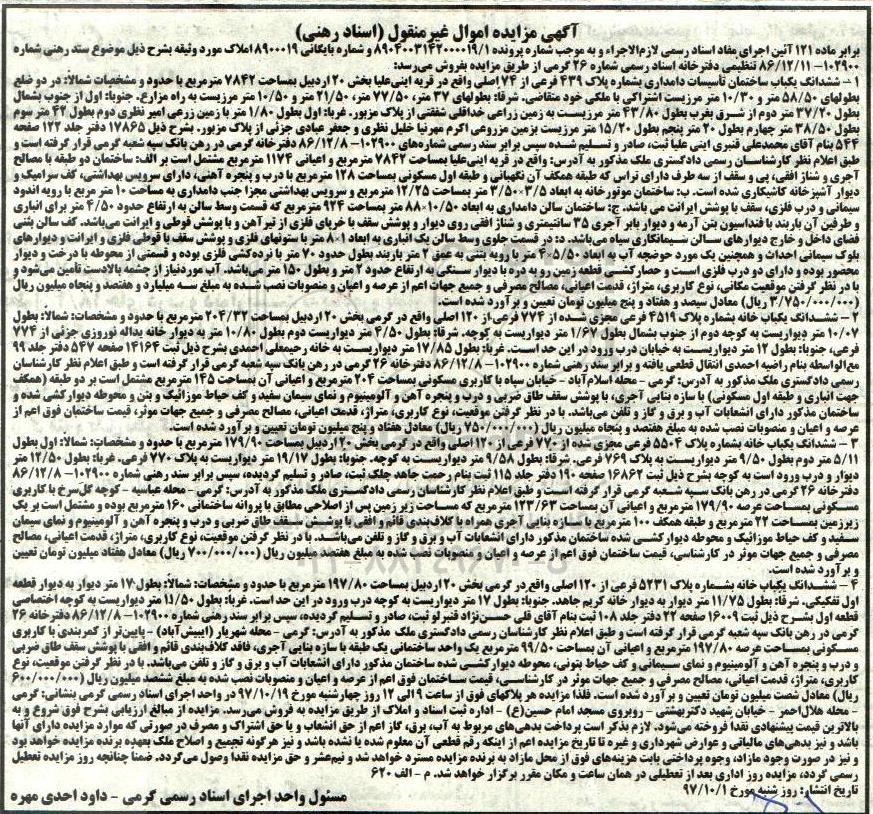 آگهی مزایده اموال غیرمنقول (اسناد رهنی)
برابر ماده ۱۲۱ آئین اجرای مفاد اسناد رسمی لازم‌الاجراء و به موجب شماره پرونده ۸۹۰۴۰۰۳۱۴۲۰۰۰۰۱۹/۱ و شماره بایگانی ۸۹۰۰۰۱۹ املاک مورد وثیقه بشرح ذیل موضوع سند رهنی شماره
۱۰۲۹۰۰- ۸۶/۱۲/۱۱ تنظیمی دفترخانه اسناد رسمی شماره ۲۶ گرمی از طریق مزایده بفروش می‌رسد:
۱- ششدانگ یکباب ساختمان تأسیسات دامداری بشماره پلاک ۴۳۹ فرعی از ۷۴ اصلی واقع در قریه اینی‌علیا بخش ۲۰ اردبیل بمساحت ۷۸۴۲ مترمربع با حدود و مشخصات شمالا: در دو ضلع
بطولهای ۵۸/۵۰ متر و ۱۰/۳۰ متر مرزیست اشتراکی با ملکی خود متقاضی. شرقا: بطولهای ۳۷ متر، ۷۷/۵۰ متر، ۲۱/۵۰ متر و ۱۰/۵۰ متر مرزیست به راه مزارع. جنوبا: اول از جنوب بشمال
بطول ۳۷/۲۰ متر دوم از شرق بغرب بطول ۴۳/۸۰ متر مرزیست به زمین زراعی خداقلی شفقتی از پلاک مزبور. غربا: اول بطول ۱/۸۰ متر با زمین زراعی امیر نظری دوم بطول ۴۲ متر سوم
بطول ۳۸/۵۰ متر چهارم بطول ۲۰ متر پنجم بطول ۱۵/۲۰ متر مرزیست بزمین مزروعی اکرم مهرنیا خلیل نظری و جعفر عبادی جزئی از پلاک مزبور. بشرح ذیل ۱۷۸۶۵ دفتر جلد ۱۲۲ صفحه
۵۴۴ بنام آقای محمدعلی قنبری اینی علیا ثبت، صادر و تسلیم شده سپس برابر سند رسمی شماره‌های ۱۰۲۹۰۰- ۸۶/۱۲/۸ دفترخانه گرمی در رهن بانک سپه شعبه گرمی قرار گرفته است و
طبق اعلام نظر کارشناسان رسمی دادگستری ملک مذکور به آدرس: واقع در قریه اینی‌علیا بمساحت ۷۸۴۲ مترمربع و اعیانی ۱۱۷۴ مترمربع مشتمل است بر الف: ساختمان دو طبقه با مصالح
آجری و شناژ افقی، پی و سقف از سه طرف دارای تراس که طبقه همکف آن نگهبانی و طبقه اول مسکونی بمساحت ۱۲۸ مترمربع با درب و پنجره آهنی، دارای سرویس بهداشتی، کف سرامیک و
دیوار آشپزخانه کاشیکاری شده است. ب: ساختمان موتورخانه به ابعاد ۳/۵×۳/۵۰ متر بمساحت ۱۲/۲۵ مترمربع و سرویس بهداشتی مجزا جنب دامداری به مساحت ۱۰ متر مربع با رویه اندود
سیمانی و درب فلزی، سقف با پوشش ایرانت می باشد. ج: ساختمان سالن دامداری به ابعاد ۱۰/۵۰×۸۸ متر بمساحت ۹۲۴ مترمربع که قسمت وسط سالن به ارتفاع حدود ۴/۵۰ متر برای انباری
و طرفین آن باربند با فنداسیون بتن آرمه و دیوار بابر آجری ۳۵ سانتیمتری و شناژ افقی روی دیوار و پوشش سقف با خرپای فلزی از تیرآهن و با پوشش قوطی و ایرانت می‌باشد. کف سالن بتنی
فضای داخل و خارج دیوارهای سالن سیمانکاری سیاه می‌باشد. د: در قسمت جلوی وسط سالن یک انباری به ابعاد ۱×۸ متر با ستونهای فلزی و پوشش سقف با قوطی فلزی و ایرانت و دیوارهای
بلوک سیمانی احداث و همچنین یک مورد حوضچه آب به ابعاد ۵/۵۰×۴ متر با رویه بتنی به عمق ۲ متر باربند بطول حدود ۷۰ متر با نرده‌کشی فلزی بوده و قسمتی از محوطه با درخت و دیوار
محصور بوده و دارای دو درب فلزی است و حصارکشی قطعه زمین رو به دره با دیوار سنگی به ارتفاع حدود ۲ متر و بطول ۱۵۰ متر می‌باشد. آب موردنیاز از چشمه بالادست تأمین می‌شود و
با در نظر گرفتن موقعیت مکانی، نوع کاربری، متراژ، قدمت اعیانی، مصالح مصرفی و جمیع جهات اعم از عرصه و اعیان و منصوبات نصب شده به مبلغ سه میلیارد و هفتصد و پنجاه میلیون ریال
(۳/۷۵۰/۰۰۰/۰۰۰ ریال) معادل سیصد و هفتاد و پنج میلیون تومان تعیین و برآورد شده است.
۲- ششدانگ یکباب خانه بشماره پلاک ۴۵۱۹ فرعی مجزی شده از ۷۷۴ فرعی از ۱۲۰ اصلی واقع در گرمی بخش ۲۰ اردبیل بمساحت ۲۰۴/۳۲ مترمربع با حدود و مشخصات: شمالا: بطول
۱۰/۰۷ متر دیواریست به کوچه دوم از جنوب بشمال بطول ۱/۶۷ متر دیواریست به کوچه. شرقا: بطول ۴/۵۰ متر دیواریست دوم بطول ۱۰/۸۰ متر به دیوار خانه یداله نوروزی جزئی از ۷۷۴
فرعی، جنوبا: بطول ۱۲ متر دیواریست به خیابان درب ورود در این حد است. غربا: بطول ۱۷/۸۵ متر دیواریست به خانه رحیمعلی احمدی بشرح ذیل ثبت ۱۴۱۶۴ صفحه ۵۴۷ دفتر جلد ۹۹
مع‌الواسطه بنام راضیه احمدی انتقال قطعی یافته و برابر سند رهنی شماره ۱۰۲۹۰۰- ۸۶/۱۲/۸ دفترخانه ۲۶ گرمی در رهن بانک سپه شعبه گرمی قرار گرفته است و طبق اعلام نظر کارشناسان
رسمی دادگستری ملک مذکور به آدرس: گرمی - محله اسلام‌آباد - خیابان سپاه با کاربری مسکونی بمساحت ۲۰۴ مترمربع و اعیانی آن بمساحت ۱۴۵ مترمربع مشتمل است بر دو طبقه (همکف
جهت انباری و طبقه اول مسکونی) با سازه بنایی آجری، با پوشش سقف طاق ضربی و درب و پنجره آهن و آلومینیوم و نمای سیمان سفید و کف حیاط موزائیک و بتن و محوطه دیوارکشی شده و
ساختمان مذکور دارای انشعابات آب و برق و گاز و تلفن می‌باشد. با در نظر گرفتن موقعیت، نوع کاربری، متراژ، قدمت اعیانی، مصالح مصرفی و جمیع جهات موثر، قیمت ساختمان فوق اعم از
عرصه و اعیان و منصوبات نصب شده به مبلغ هفتصد و پنجاه میلیون ریال (۷۵۰/۰۰۰/۰۰۰ ریال) معادل هفتاد و پنج میلیون تومان تعیین و برآورد شده است.
۳ - ششدانگ یکباب خانه بشماره پلاک ۵۵۰۴ فرعی مجزی شده از ۷۷۰ فرعی از ۱۲۰ اصلی واقع در گرمی بخش ۲۰ اردبیل بمساحت ۱۷۹/۹۰ مترمربع با حدود و مشخصات: شمالا: اول بطول
۵/۱۱ متر دوم بطول ۹/۵۰ متر دیواریست به پلاک ۷۶۹ فرعی. شرقا: بطول ۹/۵۸ متر دیواریست به کوچه. جنوبا: بطول ۱۹/۱۷ متر دیواریست به پلاک ۷۷۰ فرعی. غربا: بطول ۱۲/۵۰ متر
دیوار و درب ورود است به کوچه بشرح ذیل ثبت ۱۶۸۶۲ صفحه ۱۹۰ دفتر جلد ۱۱۵ ثبت بنام رحمت جاهد چلک ثبت، صادر و تسلیم گردیده، سپس برابر سند رهنی شماره ۱۰۲۹۰۰- ۸۶/۱۲/۸
دفترخانه ۲۶ گرمی در رهن بانک سپه شعبه گرمی قرار گرفته است و طبق اعلام نظر کارشناسان رسمی دادگستری ملک مذکور به آدرس: گرمی - محله عباسیه - کوچه گل‌سرخ با کاربری
مسکونی بمساحت عرصه ۱۷۹/۹۰ مترمربع و اعیانی آن بمساحت ۱۲۳/۶۳ مترمربع که مساحت زیر زمین پس از اصلاحی مطابق با پروانه ساختمانی ۱۶۰ مترمربع بوده و مشتمل است بر یک
زیرزمین بمساحت ۲۲ مترمربع و طبقه همکف ۱۰۰ مترمربع با سازه بنایی آجری همراه با کلاف‌بندی قائم و افقی با پوشش سقف طاق ضربی و درب و پنجره آهن و آلومینیوم و نمای سیمان
سفید و کف حیاط موزائیک و محوطه دیوارکشی شده ساختمان مذکور دارای انشعابات آب و برق و گاز و تلفن می‌باشد. با در نظر گرفتن موقعیت، نوع کاربری، متراژ، قدمت اعیانی، مصالح
مصرفی و جمیع جهات موثر در کارشناسی، قیمت ساختمان فوق اعم از عرصه و اعیان و منصوبات نصب شده به مبلغ هفتصد میلیون ریال (۷۰۰/۰۰۰/۰۰۰ ریال) معادل هفتاد میلیون تومان تعیین
و برآورد شده است.
۴ - ششدانگ یکباب خانه بشماره پلاک ۵۲۳۱ فرعی از ۱۲۰ اصلی واقع در گرمی بخش ۲۰ اردبیل بمساحت ۱۹۷/۸۰ مترمربع با حدود و مشخصات: شمالا: بطول ۱۷ متر دیوار به دیوار قطعه
اول تفکیکی. شرقا: بطول ۱۱/۷۵ متر دیوار به دیوار خانه کریم جاهد. جنوبا: بطول ۱۷ متر دیواریست به کوچه درب ورود در این حد است. غربا: بطول ۱۱/۵۰ متر دیواریست به کوچه اختصاصی
قطعه اول بشرح ذیل ثبت ۱۶۰۰۹ صفحه ۲۲ دفتر جلد ۱۰۸ ثبت بنام آقای قلی حسن‌نژاد قنبرلو ثبت، صادر و تسلیم گردیده، سپس برابر سند رهنی شماره ۱۰۲۹۰۰- ۸۶/۱۲/۸ دفترخانه ۲۶
گرمی در رهن بانک سپه شعبه گرمی قرار گرفته است و طبق اعلام نظر کارشناسان رسمی دادگستری ملک مذکور به آدرس: گرمی - محله شهریار (ایبیش‌آباد) - پایین‌تر از کمربندی با کاربری
مسکونی بمساحت عرصه ۱۹۷/۸۰ مترمربع و اعیانی آن بمساحت ۹۹/۵۰ مترمربع یک واحد ساختمانی یک طبقه با سازه بنایی آجری، فاقد کلاف‌بندی قائم و افقی با پوشش سقف طاق ضربی
و درب و پنجره آهن و آلومینیوم و نمای سیمانی و کف حیاط بتونی، محوطه دیوارکشی شده ساختمان مذکور دارای انشعابات آب و برق و گاز و تلفن می‌باشد. با در نظر گرفتن موقعیت، نوع
کاربری، متراژ، قدمت اعیانی، مصالح مصرفی و جمیع جهات موثر در کارشناسی، قیمت ساختمان فوق اعم از عرصه و اعیان و منصوبات نصب شده به مبلغ ششصد میلیون ریال (۶۰۰/۰۰۰/۰۰۰
ریال) معادل شصت میلیون تومان تعیین و برآورد شده است. فلذا مزایده هر پلاکهای فوق از ساعت ۹ الی ۱۲ روز چهارشنبه مورخ ۹۷/۱۰/۱۹ در واحد اجرای اسناد رسمی گرمی بنشانی: گرمی
- محله هلال‌احمر - خیابان شهید دکتربهشتی - روبروی مسجد امام حسین(ع) - اداره ثبت اسناد و املاک از طریق مزایده به فروش می‌رسد. مزایده از مبالغ ارزیابی بشرح فوق شروع و به
بالاترین قیمت پیشنهادی نقدا فروخته می‌شود. لازم بذکر است پرداخت بدهی‌های مربوط به آب، برق، گاز اعم از حق انشعاب و یا حق اشتراک و مصرف در صورتی که موارد مزایده دارای آنها
باشد و نیز بدهی‌های مالیاتی و عوارض شهرداری و غیره تا تاریخ مزایده اعم از اینکه رقم قطعی آن معلوم شده یا نشده باشد و نیز هرگونه تجمیع و اصلاح ملک بعهده برنده مزایده خواهد بود
و نیز در صورت وجود مازاد، وجوه پرداختی بابت هزینه‌های فوق از محل مازاد به برنده مزایده مسترد خواهد شد و نیم‌عشر و حق مزایده نقدا وصول می‌گردد. ضمنا چنانچه روز مزایده تعطیل
رسمی گردد، مزایده روز اداری بعد از تعطیلی در همان ساعت و مکان مقرر برگزار خواهد شد. م - الف ۶۲۰
تاریخ انتشار: روز شنبه مورخ ۹۷/۱۰/۱
مسئول واحد اجرای اسناد رسمی گرمی - داود احدی مهره